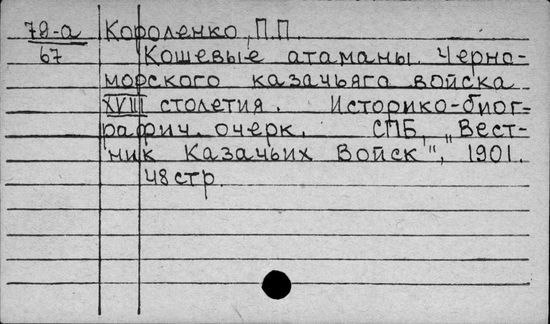 79-а Короленко, П.П.
67 Кошевые атаманы Черно-
морского казачьяго войска
XVIII столетия. Историко-биог-
рафич. очерк. СПБ, „Вест-
ник Казачьих Войск", 1901.
48 стр.